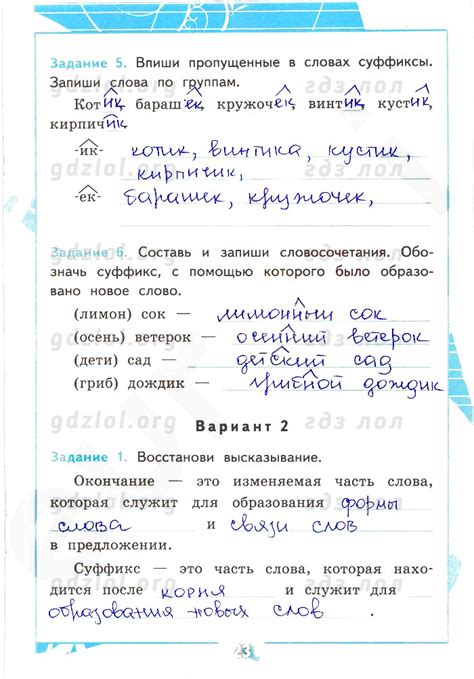 Задание 5. Впиши пропущенные в словах суффиксы.
Запиши слова по группам.
Котик, барашек, кружочек, винтик, кустик,
кирпичик.
-ик- котик, винтика, кустик,
кирпичик,
-ек- барашек, кружочек,
gdzlol.org гдз лол
Задание 6. Составь и запиши словосочетания. Обо-
значь суффикс, с помощью которого было образо-
вано новое слово.
(лимон) сок — лимонный сок
(осень) ветерок — осенний ветерок
(дети) сад — детский сад
(гриб) дождик — грибной дождик
gdzlol.org гдз лол
Вариант 2
Задание 1. Восстанови высказывание.
Окончание — это изменяемая часть слова,
которая служит для образования формы
слова и связи слов
в предложении.
gdzlol.org гдз лол
Суффикс — это часть слова, которая нахо-
дится после корня и служит для
образования новых слов.